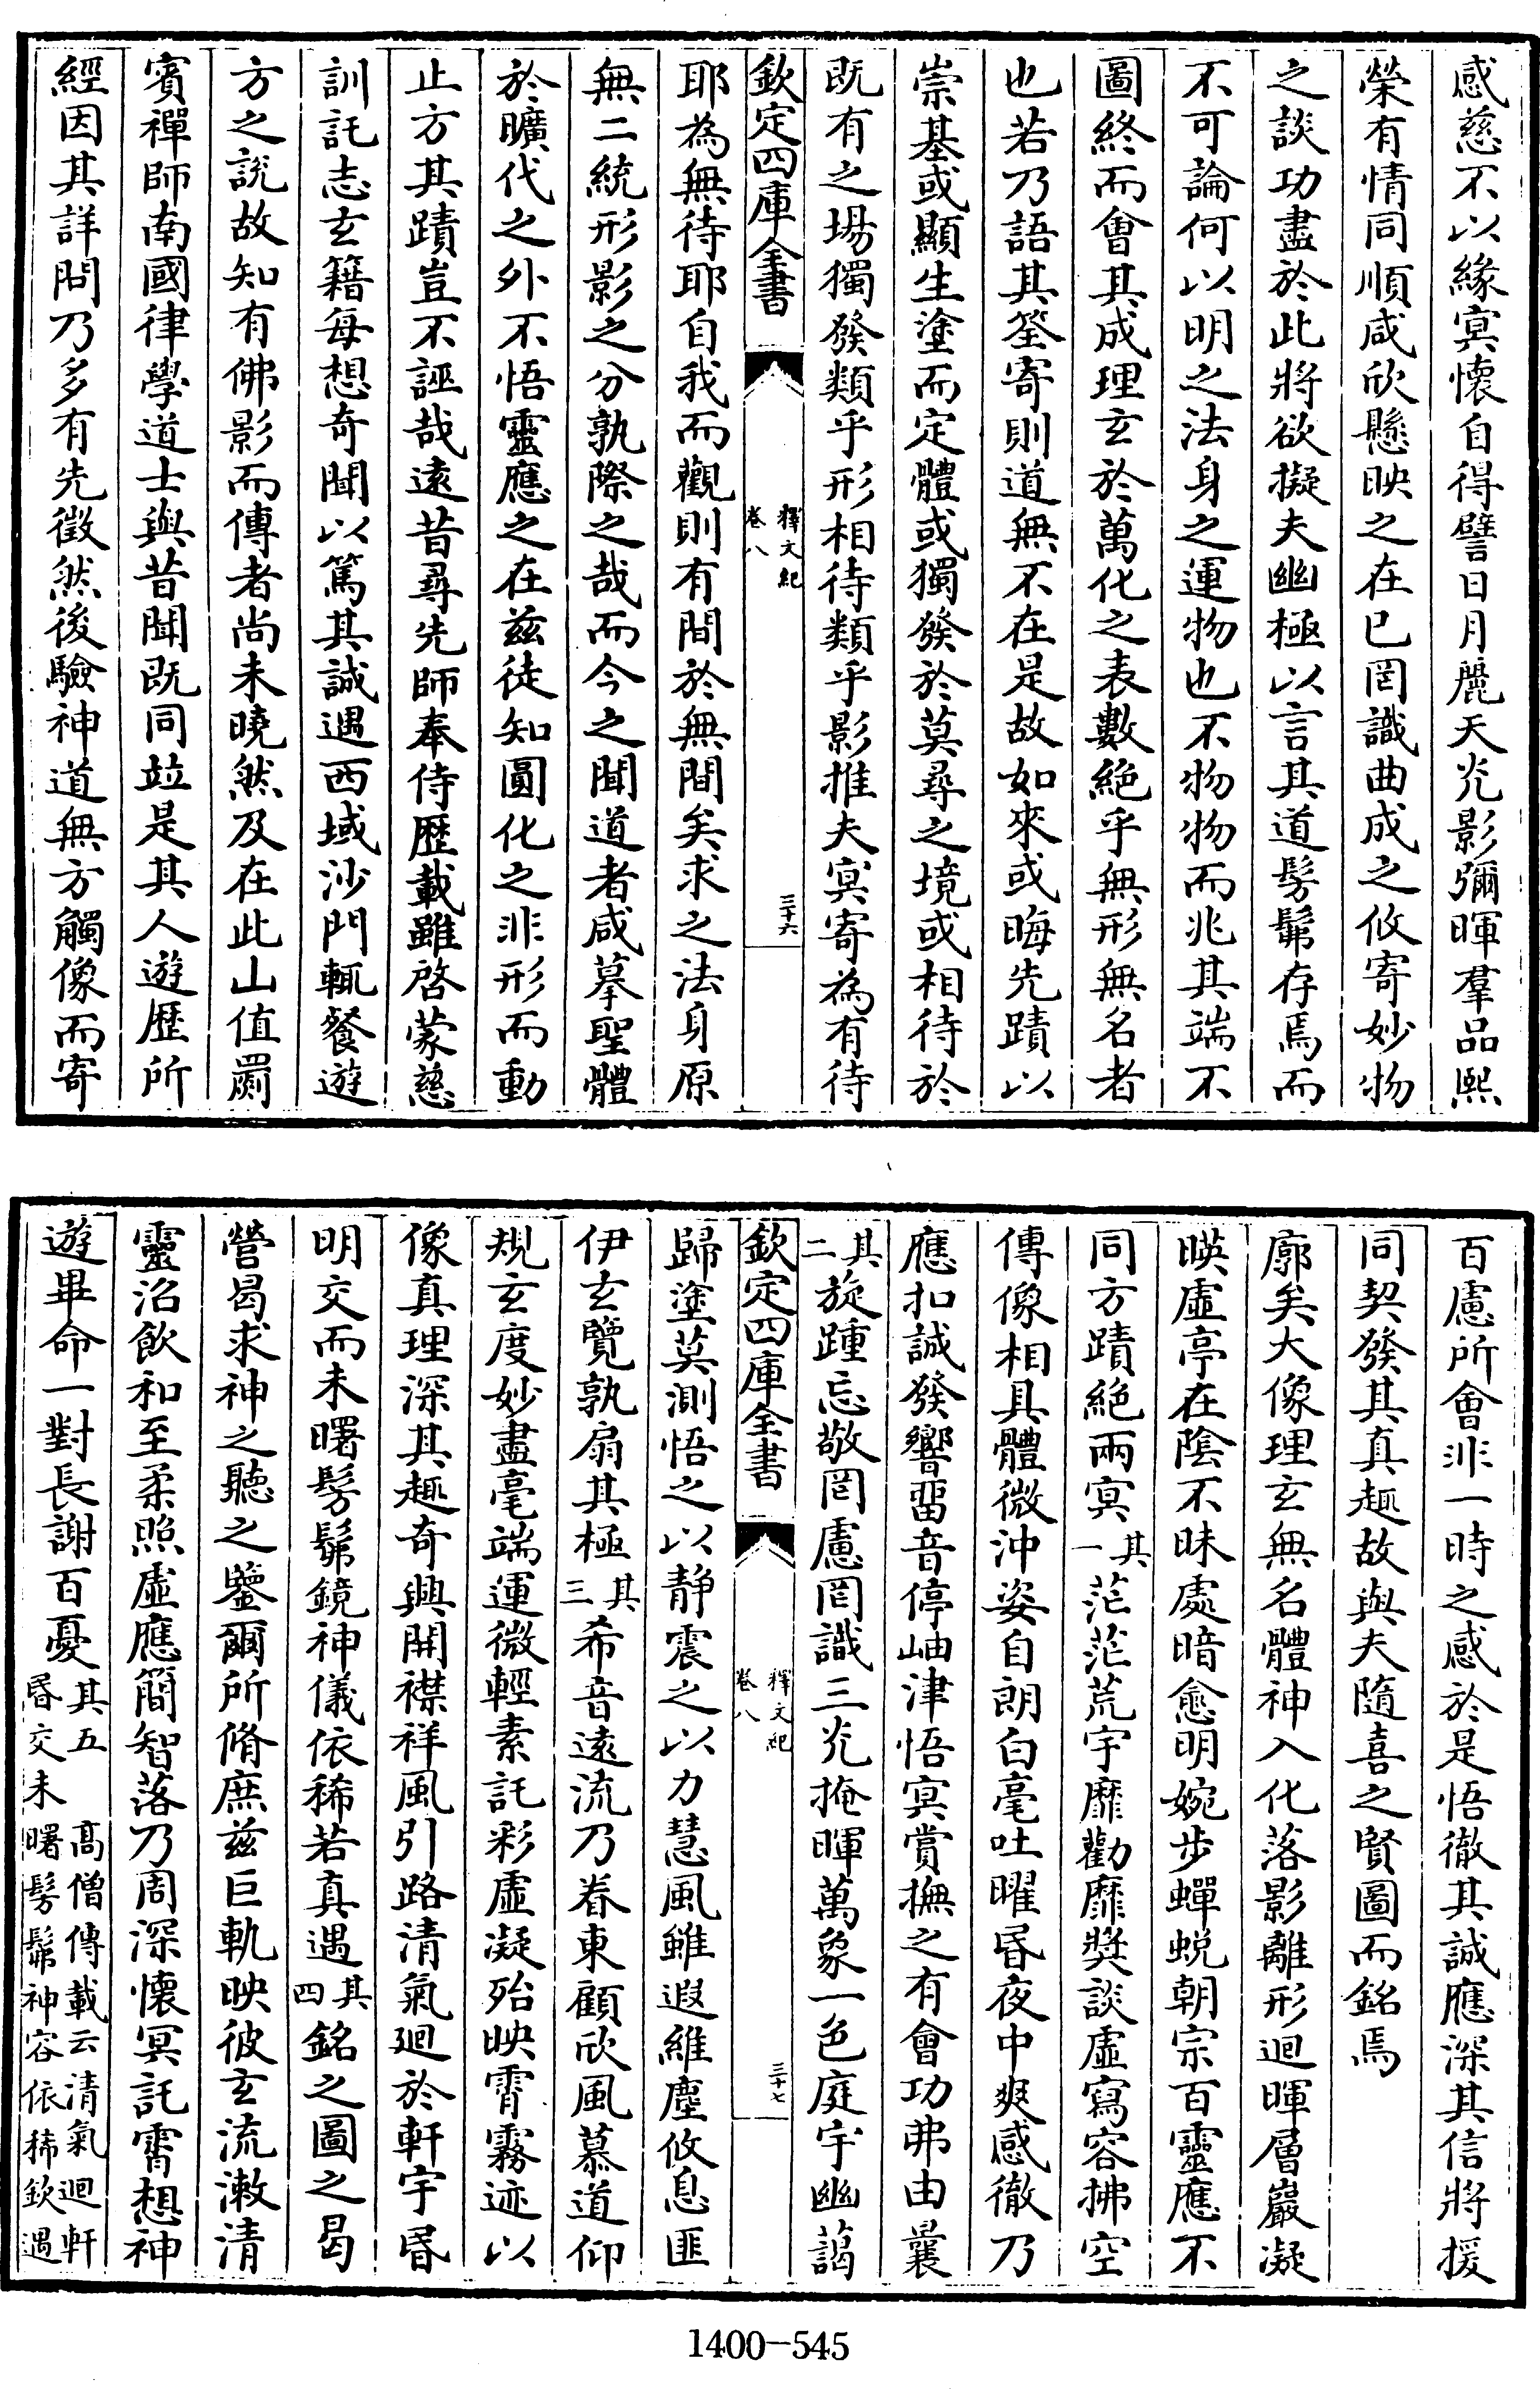 感慈不以緣㝠懷自得譬日月麗天光影彌暉羣品熈
榮有情同順咸欣懸映之在已罔識曲成之攸寄妙物
之談功盡於此將欲擬夫幽極以言其道髣髴存焉而
不可論何以明之法身之運物也不物物而兆其端不
圖終而會其成理玄於萬化之表數絶乎無形無名者
也若乃語其筌寄則道無不在是故如來或晦先蹟以
崇基或顯生塗而定體或獨發於莫尋之境或相待於
既有之場獨發類乎形相待類乎影推夫㝠寄為有待
欽定四庫全書
釋文紀
卷八
三十六
耶為無待耶自我而觀則有間於無間矣求之法身原
無二統形影之分孰際之哉而今之聞道者咸摹聖體
於曠代之外不悟靈應之在兹徒知圓化之非形而動
止方其蹟豈不誣哉逺昔尋先師奉侍歴載雖啓蒙慈
訓託志玄籍每想奇聞以篤其誠遇西域沙門輒餐遊
方之説故知有佛影而傳者尚未曉然及在此山值罽
賓禪師南國律學道士與昔聞既同竝是其人遊歴所
經因其詳問乃多有先徵然後驗神道無方觸像而寄
百慮所會非一時之感於是悟徹其誠應深其信將援
同契發其真趣故與夫隨喜之賢圖而銘焉
廓矣大像理玄無名體神入化落影離形迴暉層巖凝
暎虛亭在隂不昧處暗愈明婉步蟬蛻朝宗百靈應不
同方蹟絶兩㝠其一茫茫荒宇靡勸靡奬談虛寫容拂空
傳像相具體微沖姿自朗白毫吐曜昏夜中爽感徹乃
應扣誠發響留音停岫津悟㝠賞撫之有會功弗由曩
其二旋踵忘敬罔慮罔識三光掩暉萬象一色庭宇幽藹
欽定四庫全書
釋文紀
卷八
三十七
歸塗莫測悟之以靜震之以力慧風雖遐維塵攸息匪
伊玄覽孰扇其極其三希音逺流乃眷東顧欣風慕道仰
規玄度妙盡毫端運微輕素託彩虛凝殆映霄霧迹以
像真理深其趣奇興開襟祥風引路清氣廻於軒宇昏
明交而未曙髣髴鏡神儀依稀若真遇其四銘之圖之曷
營曷求神之聽之鑒爾所脩庶兹巨軌映彼玄流漱清
靈沼飲和至柔照虛應簡智落乃周深懷冥託霄想神
遊畢命一對長謝百憂其五
高僧傳載云清氣迴軒
昏交未曙髣髴神容依稀欽遇
1400-545